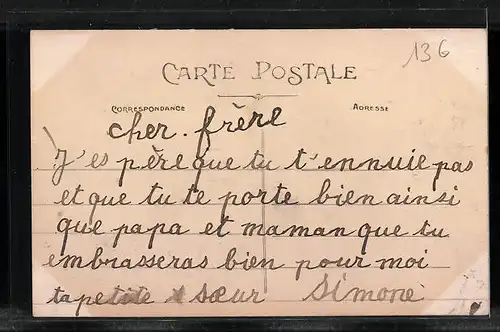 136
CARTE POSTALE
CORRESPONDANCE ADRESSE
cher. frère
J'es père que tu t'ennuie pas
et que tu te porte bien ainsi
que papa et maman que tu
embrasseras bien pour moi
ta petite sœur Simone